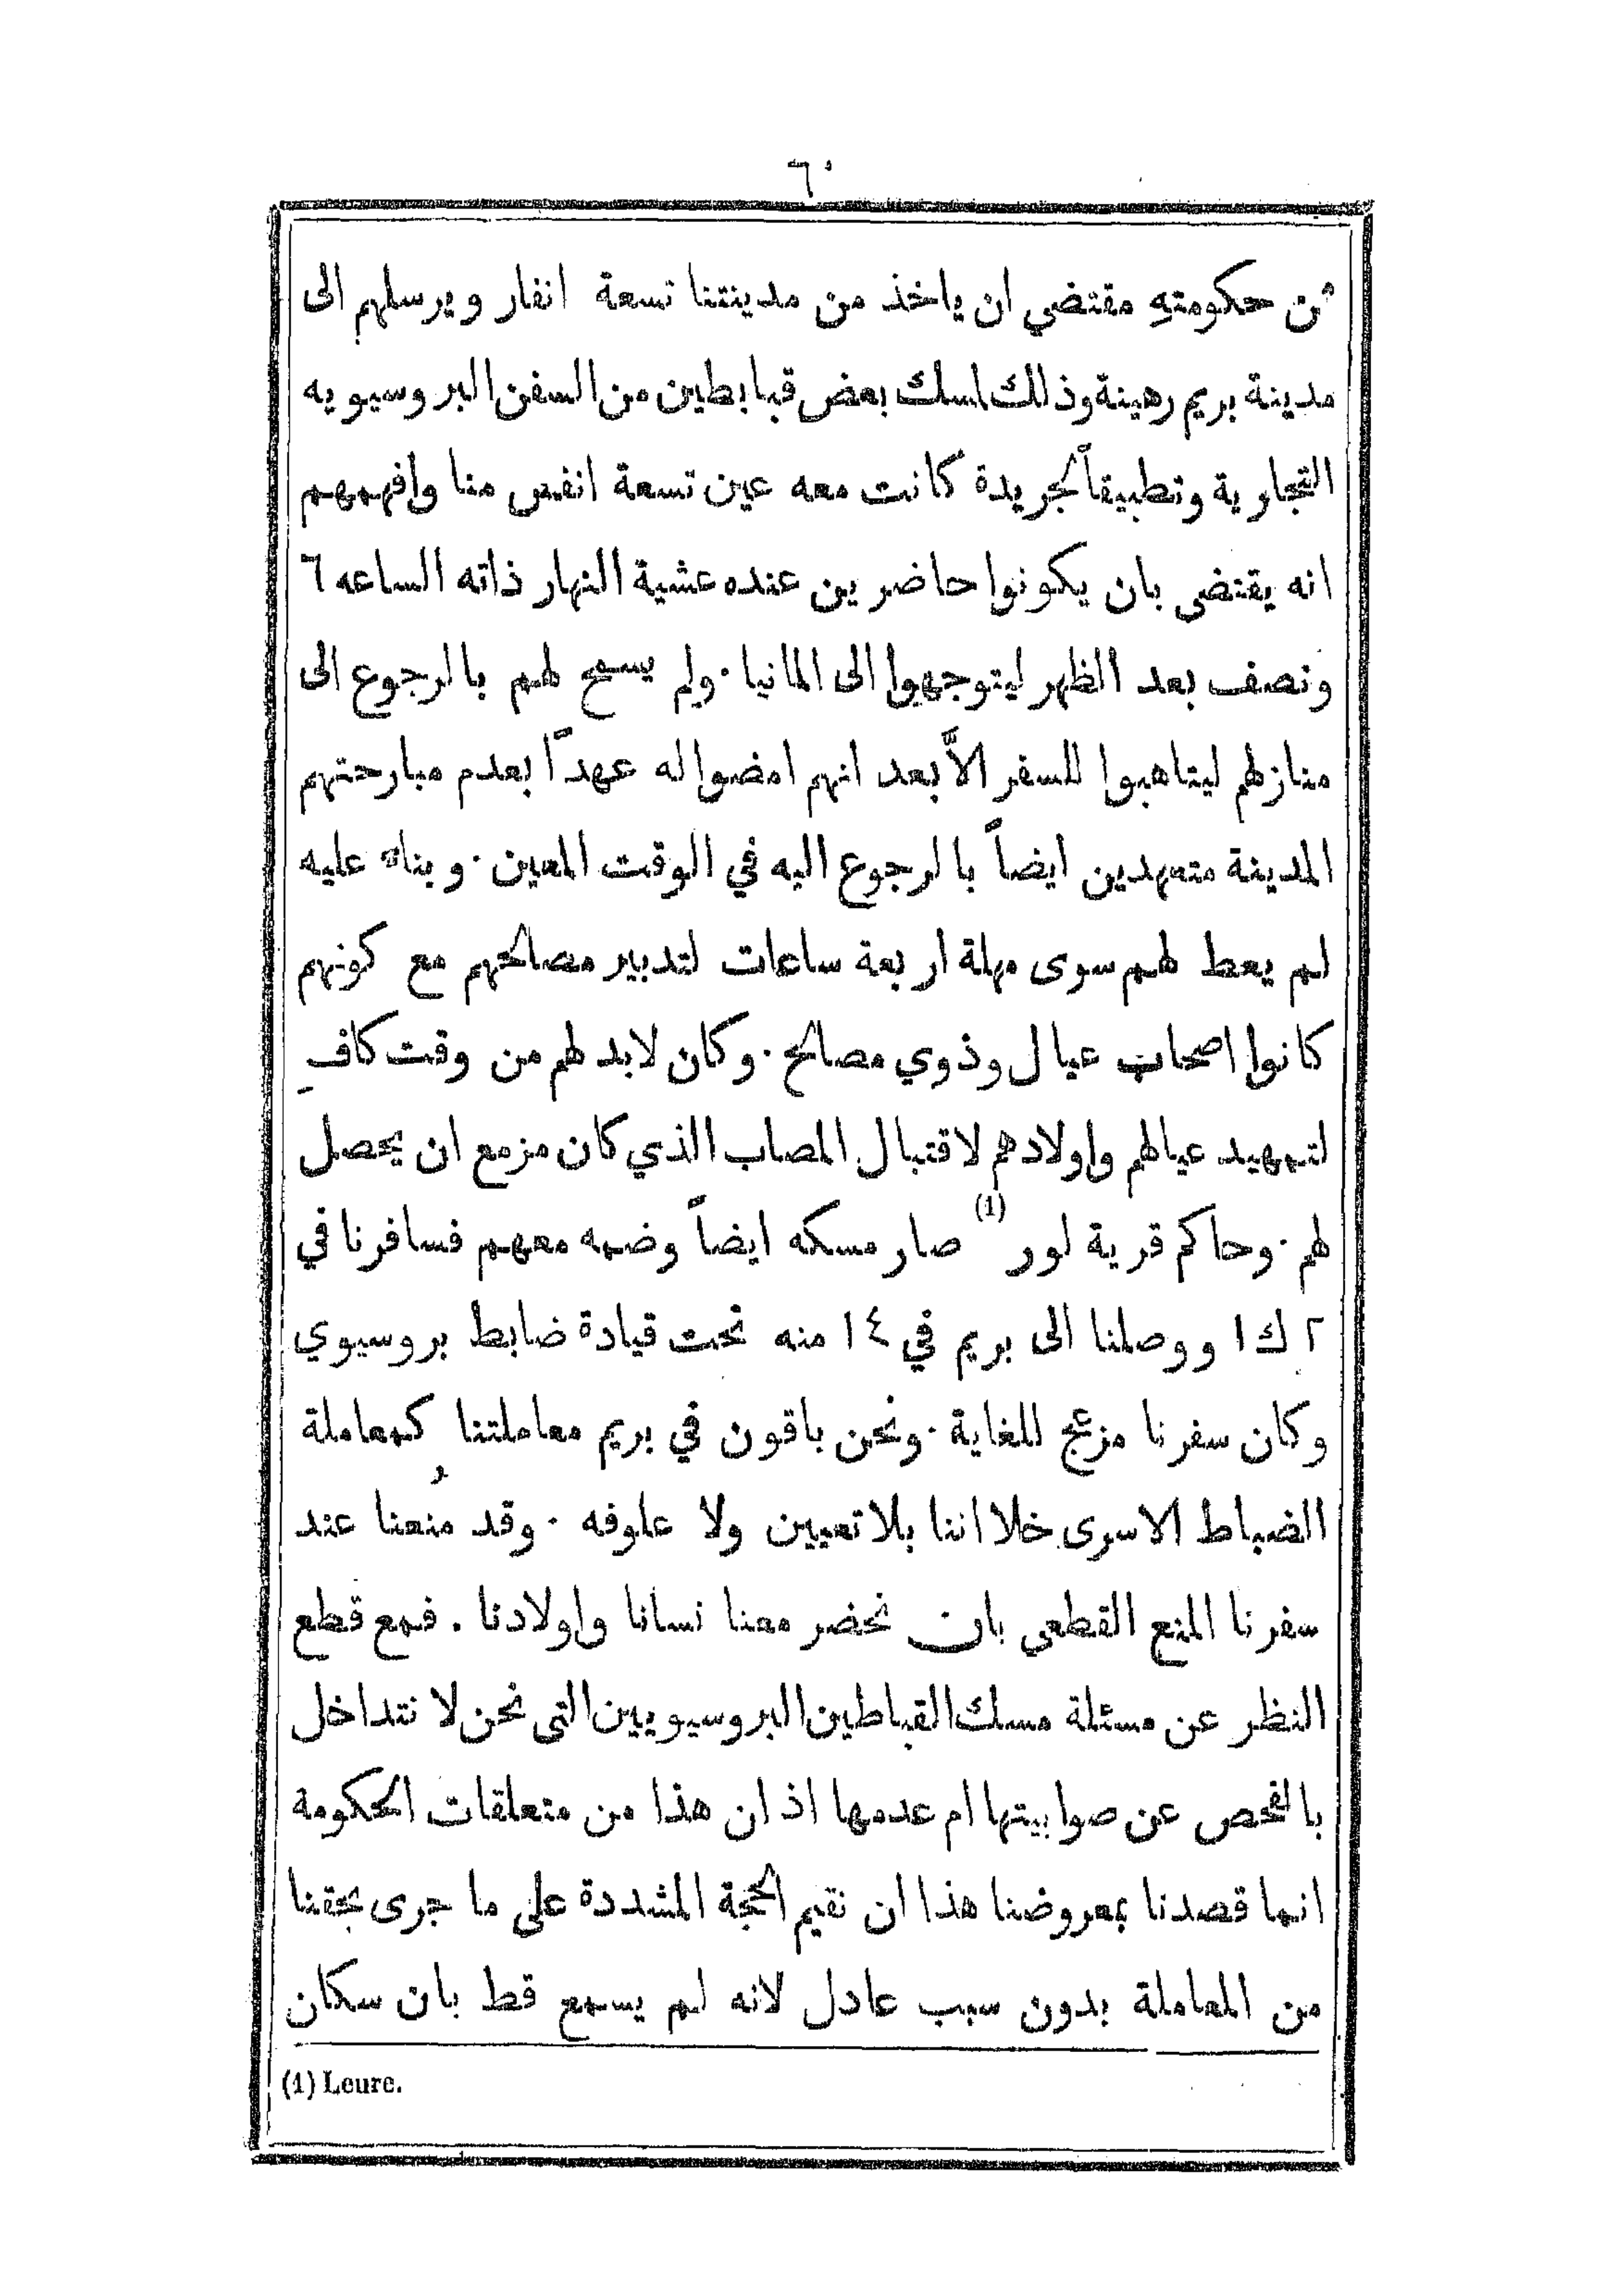 ٦٠
من حكومتهِ مقتضي ان ياخذ من مدينتنا تسعة انفار ويرسلهم الى
مدينة بريم رهينة وذلك لمسك بعض قبابطين من السفن البروسيويه
التجارية وتطبيقاً لجريدة كانت معه عين تسعة انفس منا وافهمهم
انه يقتضى بان يكونوا حاضرين عنده عشية النهار ذاته الساعه ٦
ونصف بعد الظهر ليتوجهوا الى المانيا · ولم يسمح لهم بالرجوع الى
منازلهم ليتاهبوا للسفر الاَّ بعد انهم امضوا له عهداً بعدم مبارحتهم
المدينة متعهدين ايضاً بالرجوع اليه في الوقت المعين · وبناء عليه
لم يعط لهم سوى مهلة اربعة ساعات لتدبير مصالحهم مع كونهم
كانوا اصحاب عيال وذوي مصالح · وكان لابد لهم من وقت كافٍ
لتمهيد عيالهم واولادهم لاقتبال المصاب الذي كان مزمع ان يحصل
لهم · وحاكم قرية لور (1) صار مسكه ايضاً وضمه معهم فسافرنا في
٢ ك١ ووصلنا الى بريم في ١٤ منه تحت قيادة ضابط بروسيوي
وكان سفرنا مزعج للغاية · ونحن باقون في بريم معاملتنا كمعاملة
الضباط الاسرى خلا اننا بلا تعيين ولا علوفه · وقد مُنعنا عند
سفرنا المنع القطعى بان نحضر معنا نسانا واولادنا . فمع قطع
النظر عن مسئلة مسك القباطين البروسيويين التى نحن لا نتداخل
بالفحص عن صوابيتها ام عدمها اذ ان هذا من متعلقات الحكومة
انما قصدنا بمعروضنا هذا ان نقيم الحجة المشددة على ما جرى بحقنا
من المعاملة بدون سبب عادل لانه لم يسمع قط بان سكان
(1) Leure.